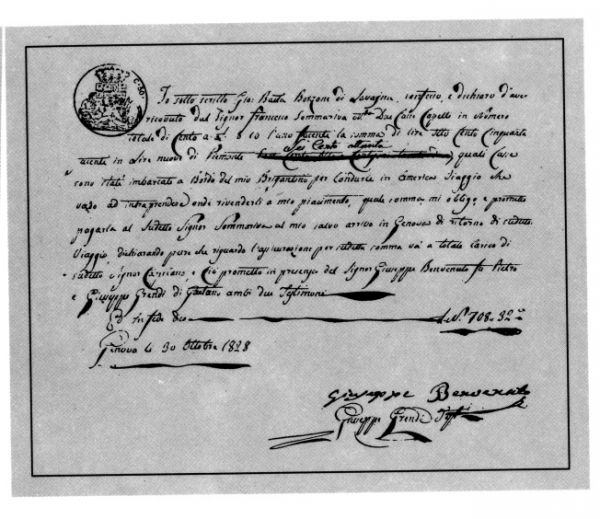 Io sotto scritto Gio: Batta Bozzoni di Lavagna, confesso, e dichiaro d'aver
ricevuto dal Signor Francesco Sommariva Due Casse Capelli in Numero
totale di Cento a £ 8 10 l'uno facente la somma di lire otto Cento Cinquanta
Sei Cento ottanta
in Lire nuove di Piemonte quali Casse
sono state imbarcate a Bordo del mio Brigantino per Condurle in America Viaggio che
vado ad intraprendere, onde rivenderli a mio piacimento, quale somma mi obligo e prometto
pagarla al sudetto Signor Sommariva al mio salvo arrivo in Genova di ritorno di sudetto
Viaggio, dichiarando pure che riguardo l'assicurazione per sudetta somma va a totale carico di
sudetto Signor e Ciò prometto in presenza del Signor Giuseppe Benvenuto fu Pietro
e Giuseppe Grendi di Gaetano ambi due Testimoni
Ed in fede dico £ N. 708. 32
Genova li 30 Ottobre 1828
Giuseppe Benvenuto
Giuseppe Grendi Test